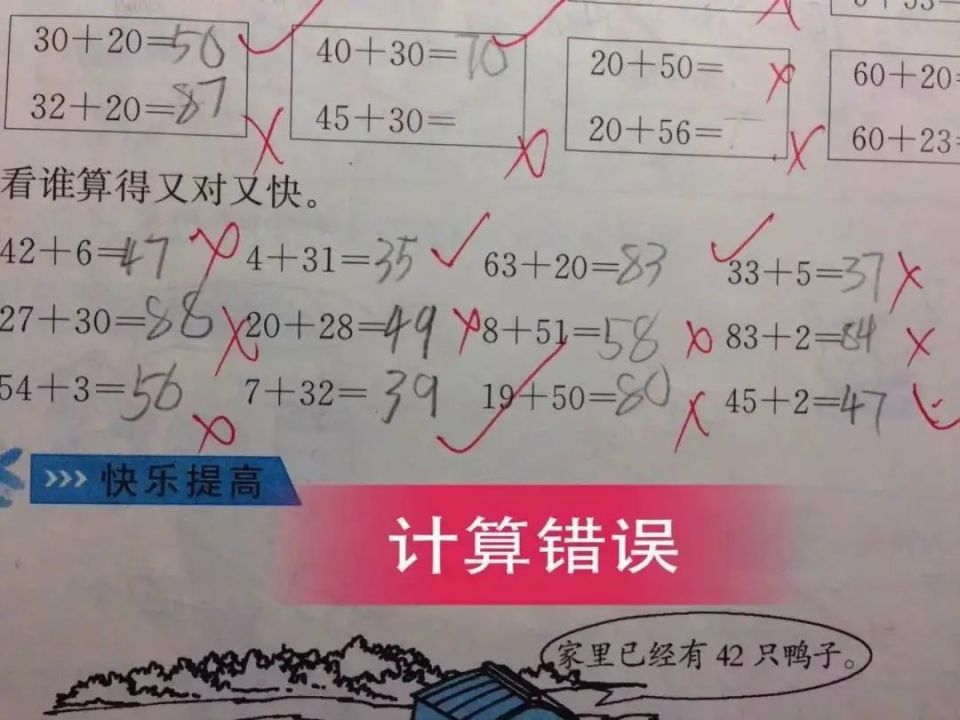 30+20=50
40+30=70
20+50=
60+20=
32+20=87
45+30=
20+56=
60+23=
看谁算得又对又快。
42+6=47 4+31=35 63+20=83 33+5=37
27+30=88 20+28=49 8+51=58 83+2=84
54+3=56 7+32=39 19+50=80 45+2=47
快乐提高
计算错误
家里已经有42只鸭子。